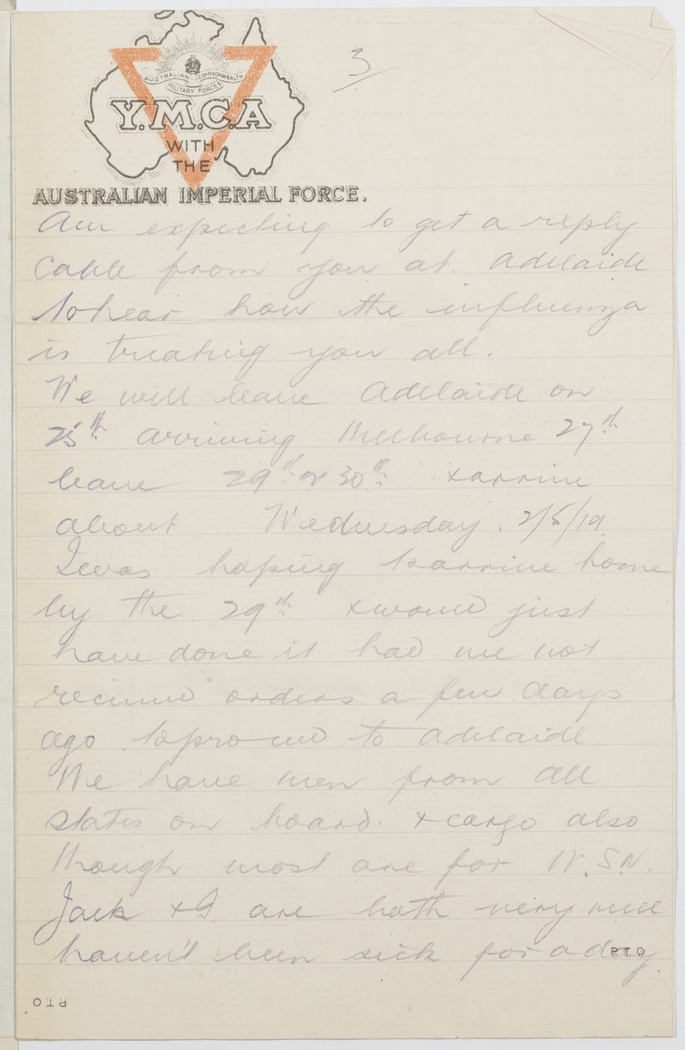 3
AUSTRALIAN COMMONWEALTH
MILITARY FORCES
Y.M.C.A
WITH
THE
AUSTRALIAN IMPERIAL FORCE.
Am expecting to get a reply
cable from you at Adelaide
to hear how the influenza
is treating you all.
We will leave Adelaide on
25th arriving Melbourne 27th
leave 29th or 30th & arrive
about Wednesday. 2/5/19
I was hoping to arrive home
by the 29th & would just
have done it had we not
received orders a few days
ago to proceed to Adelaide.
We have men from all
states on board. & cargo also
though most are for N.S.W.
Jack & I are both very well
haven't been sick for a day.
P.T.O
PTO